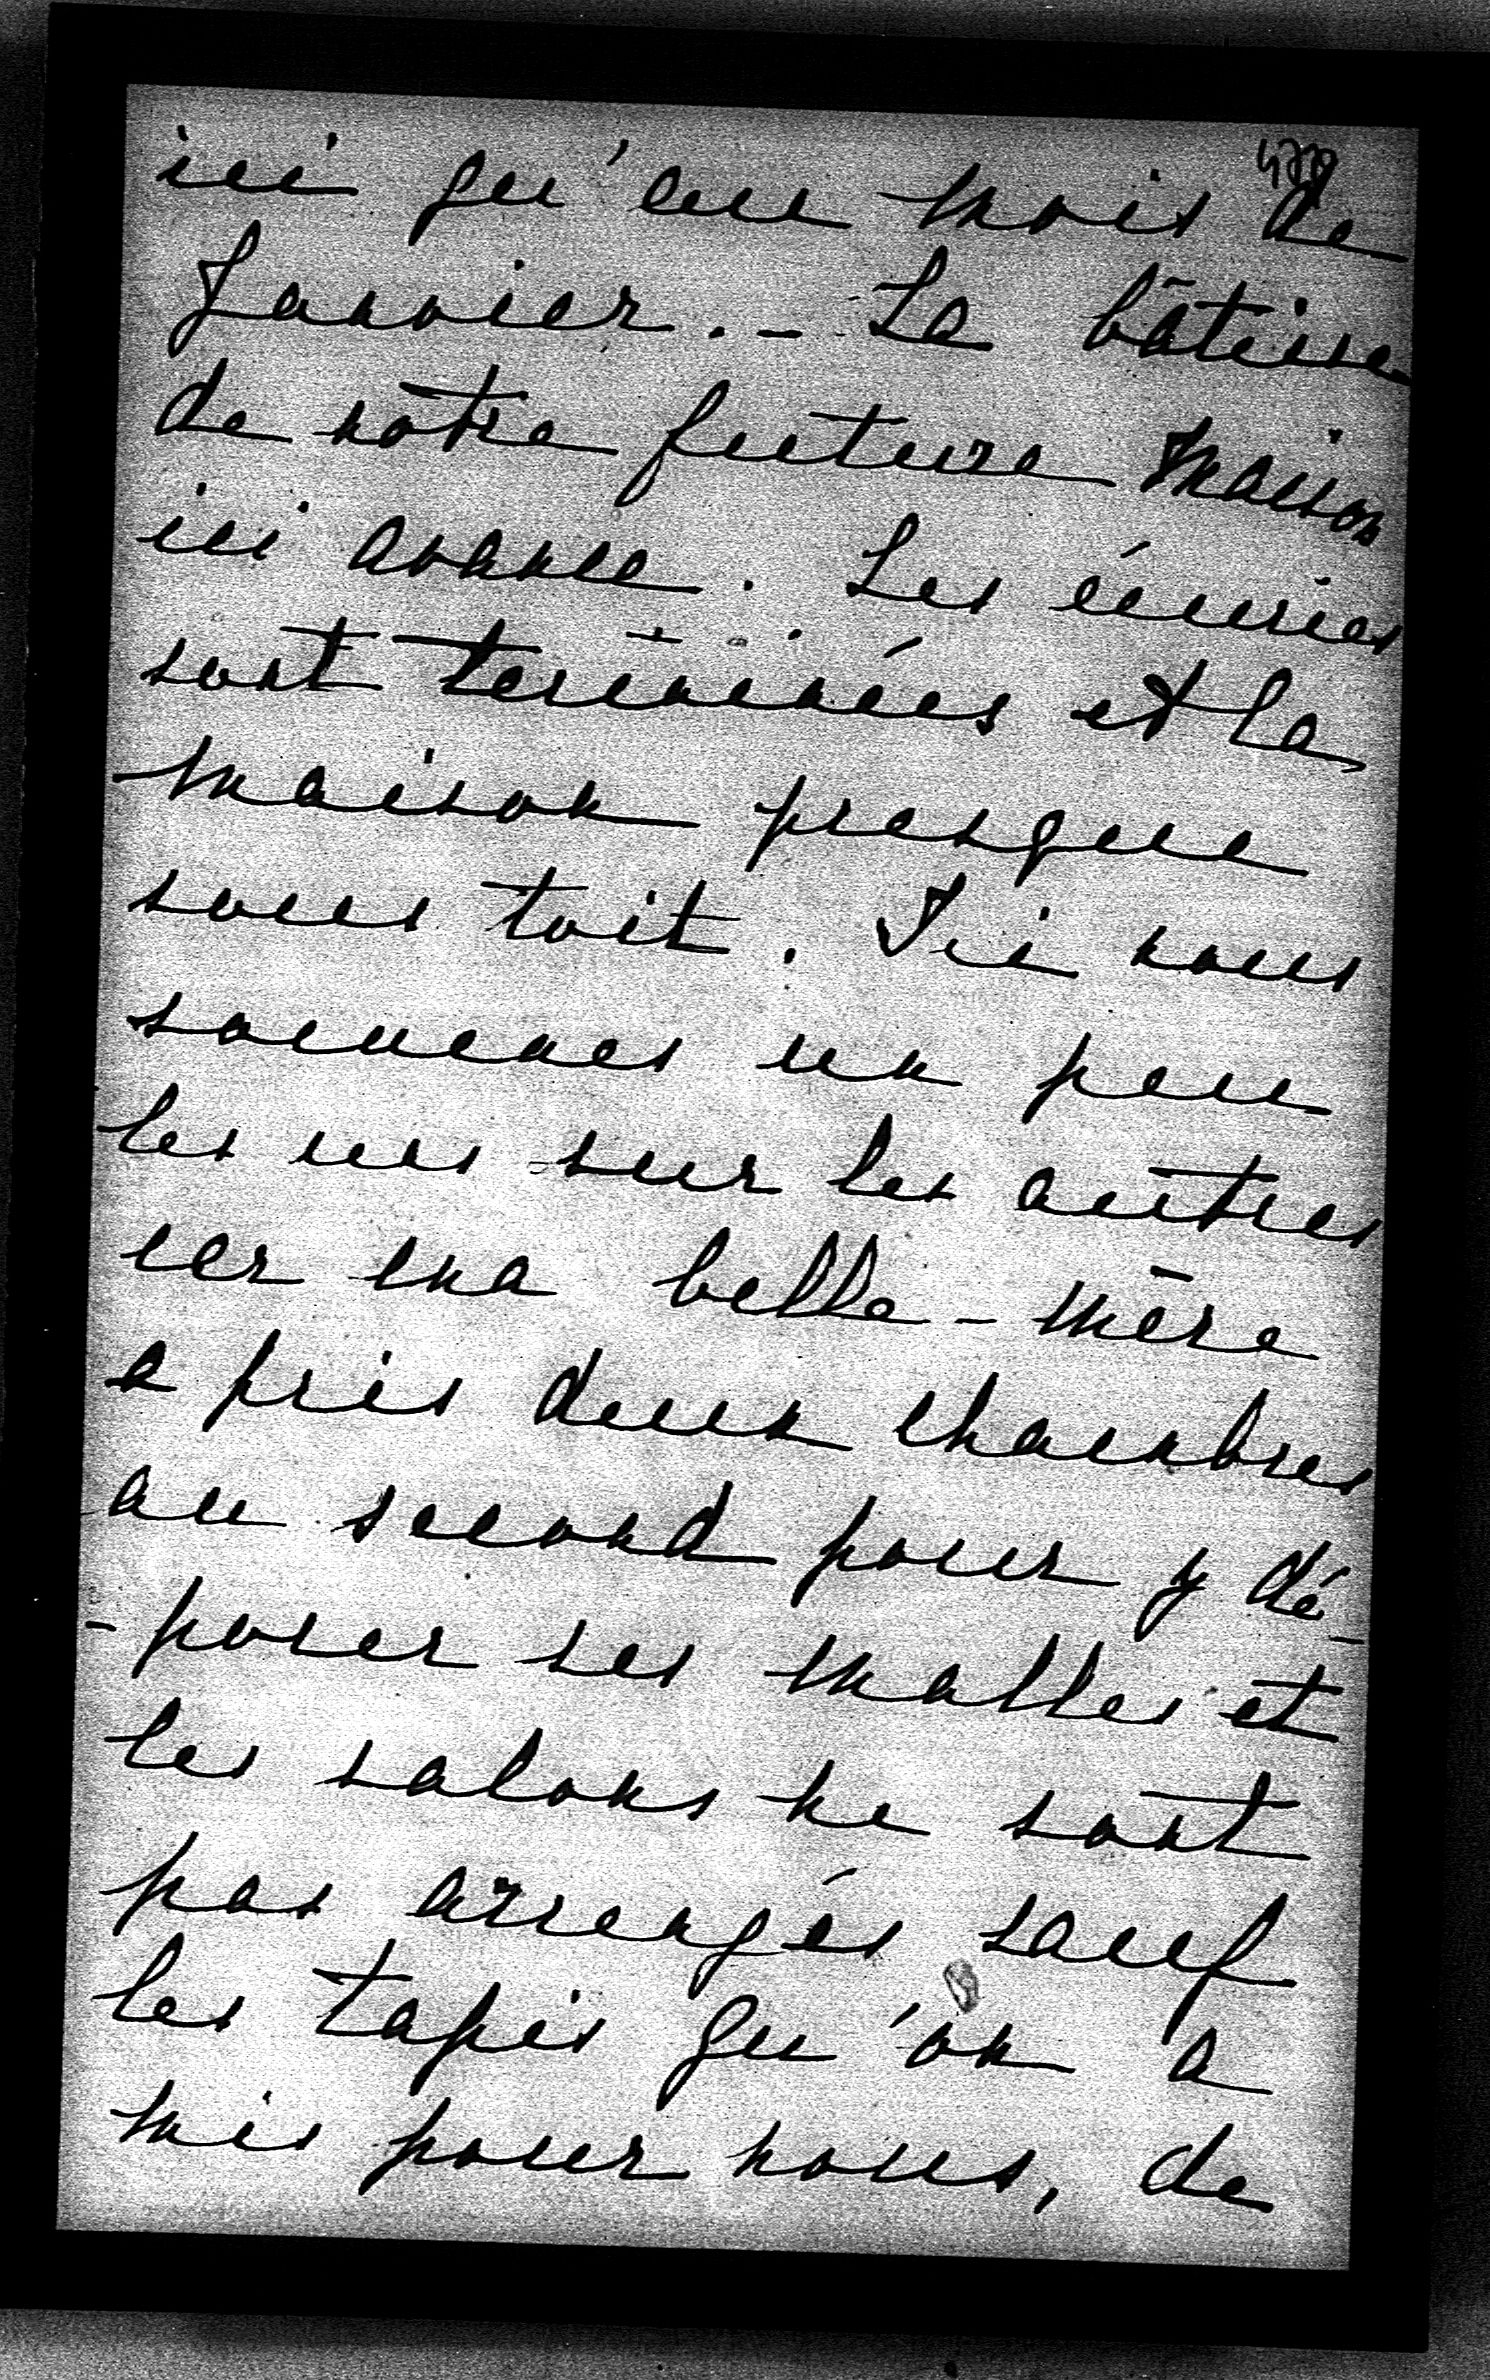 ici qu'au mois de
Janvier. - La bâtisse
de notre future maison
ici avance. Les écuries
sont terminées et la
maison presque
sous toit. Ici nous
sommes un peu
les uns sur les autres
car ma belle-mère
a pris deux chambres
au second pour y dé-
-poser ses malles et
les salons ne sont
pas arrangés sauf
les tapis qu'on a
mis pour nous, de